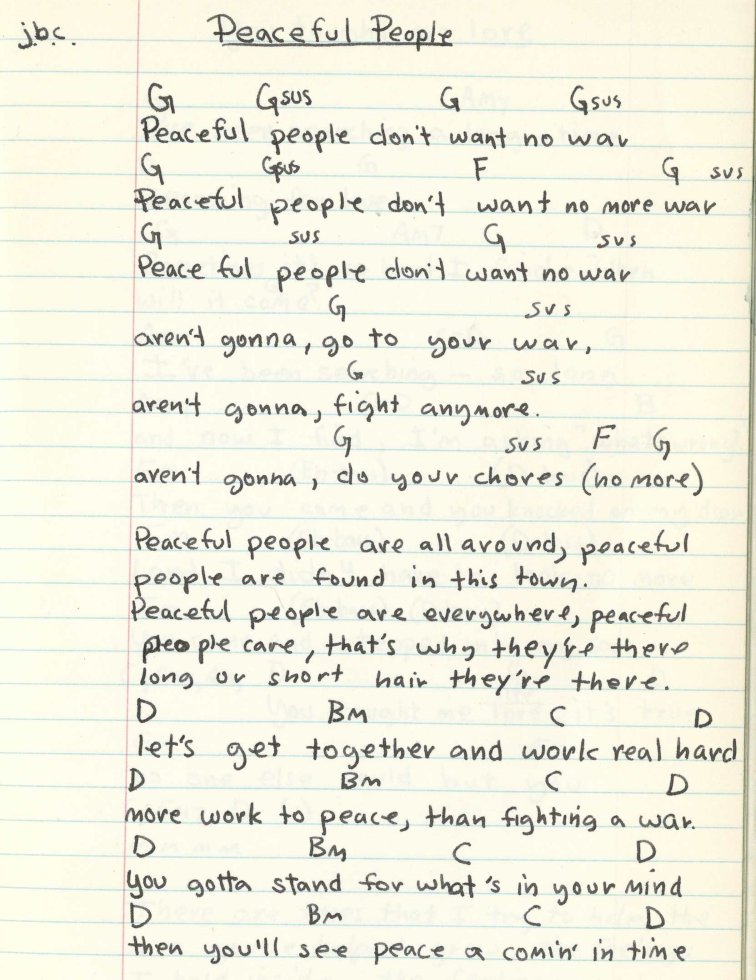 j.b.c. Peaceful People
G Gsus G Gsus
Peaceful people don't want no war
G Gsus F G sus
Peaceful people don't want no more war
G sus G sus
Peaceful people don't want no war
G sus
aren't gonna, go to your war,
G sus
aren't gonna, fight anymore.
G sus F G
aren't gonna, do your chores (no more)
Peaceful people are all around, peaceful
people are found in this town.
Peaceful people are everywhere, peaceful
people care, that's why they're there
long or short hair they're there.
D Bm C D
let's get together and work real hard
D Bm C D
more work to peace, than fighting a war.
D Bm C D
you gotta stand for what's in your mind
D Bm C D
then you'll see peace a comin' in time